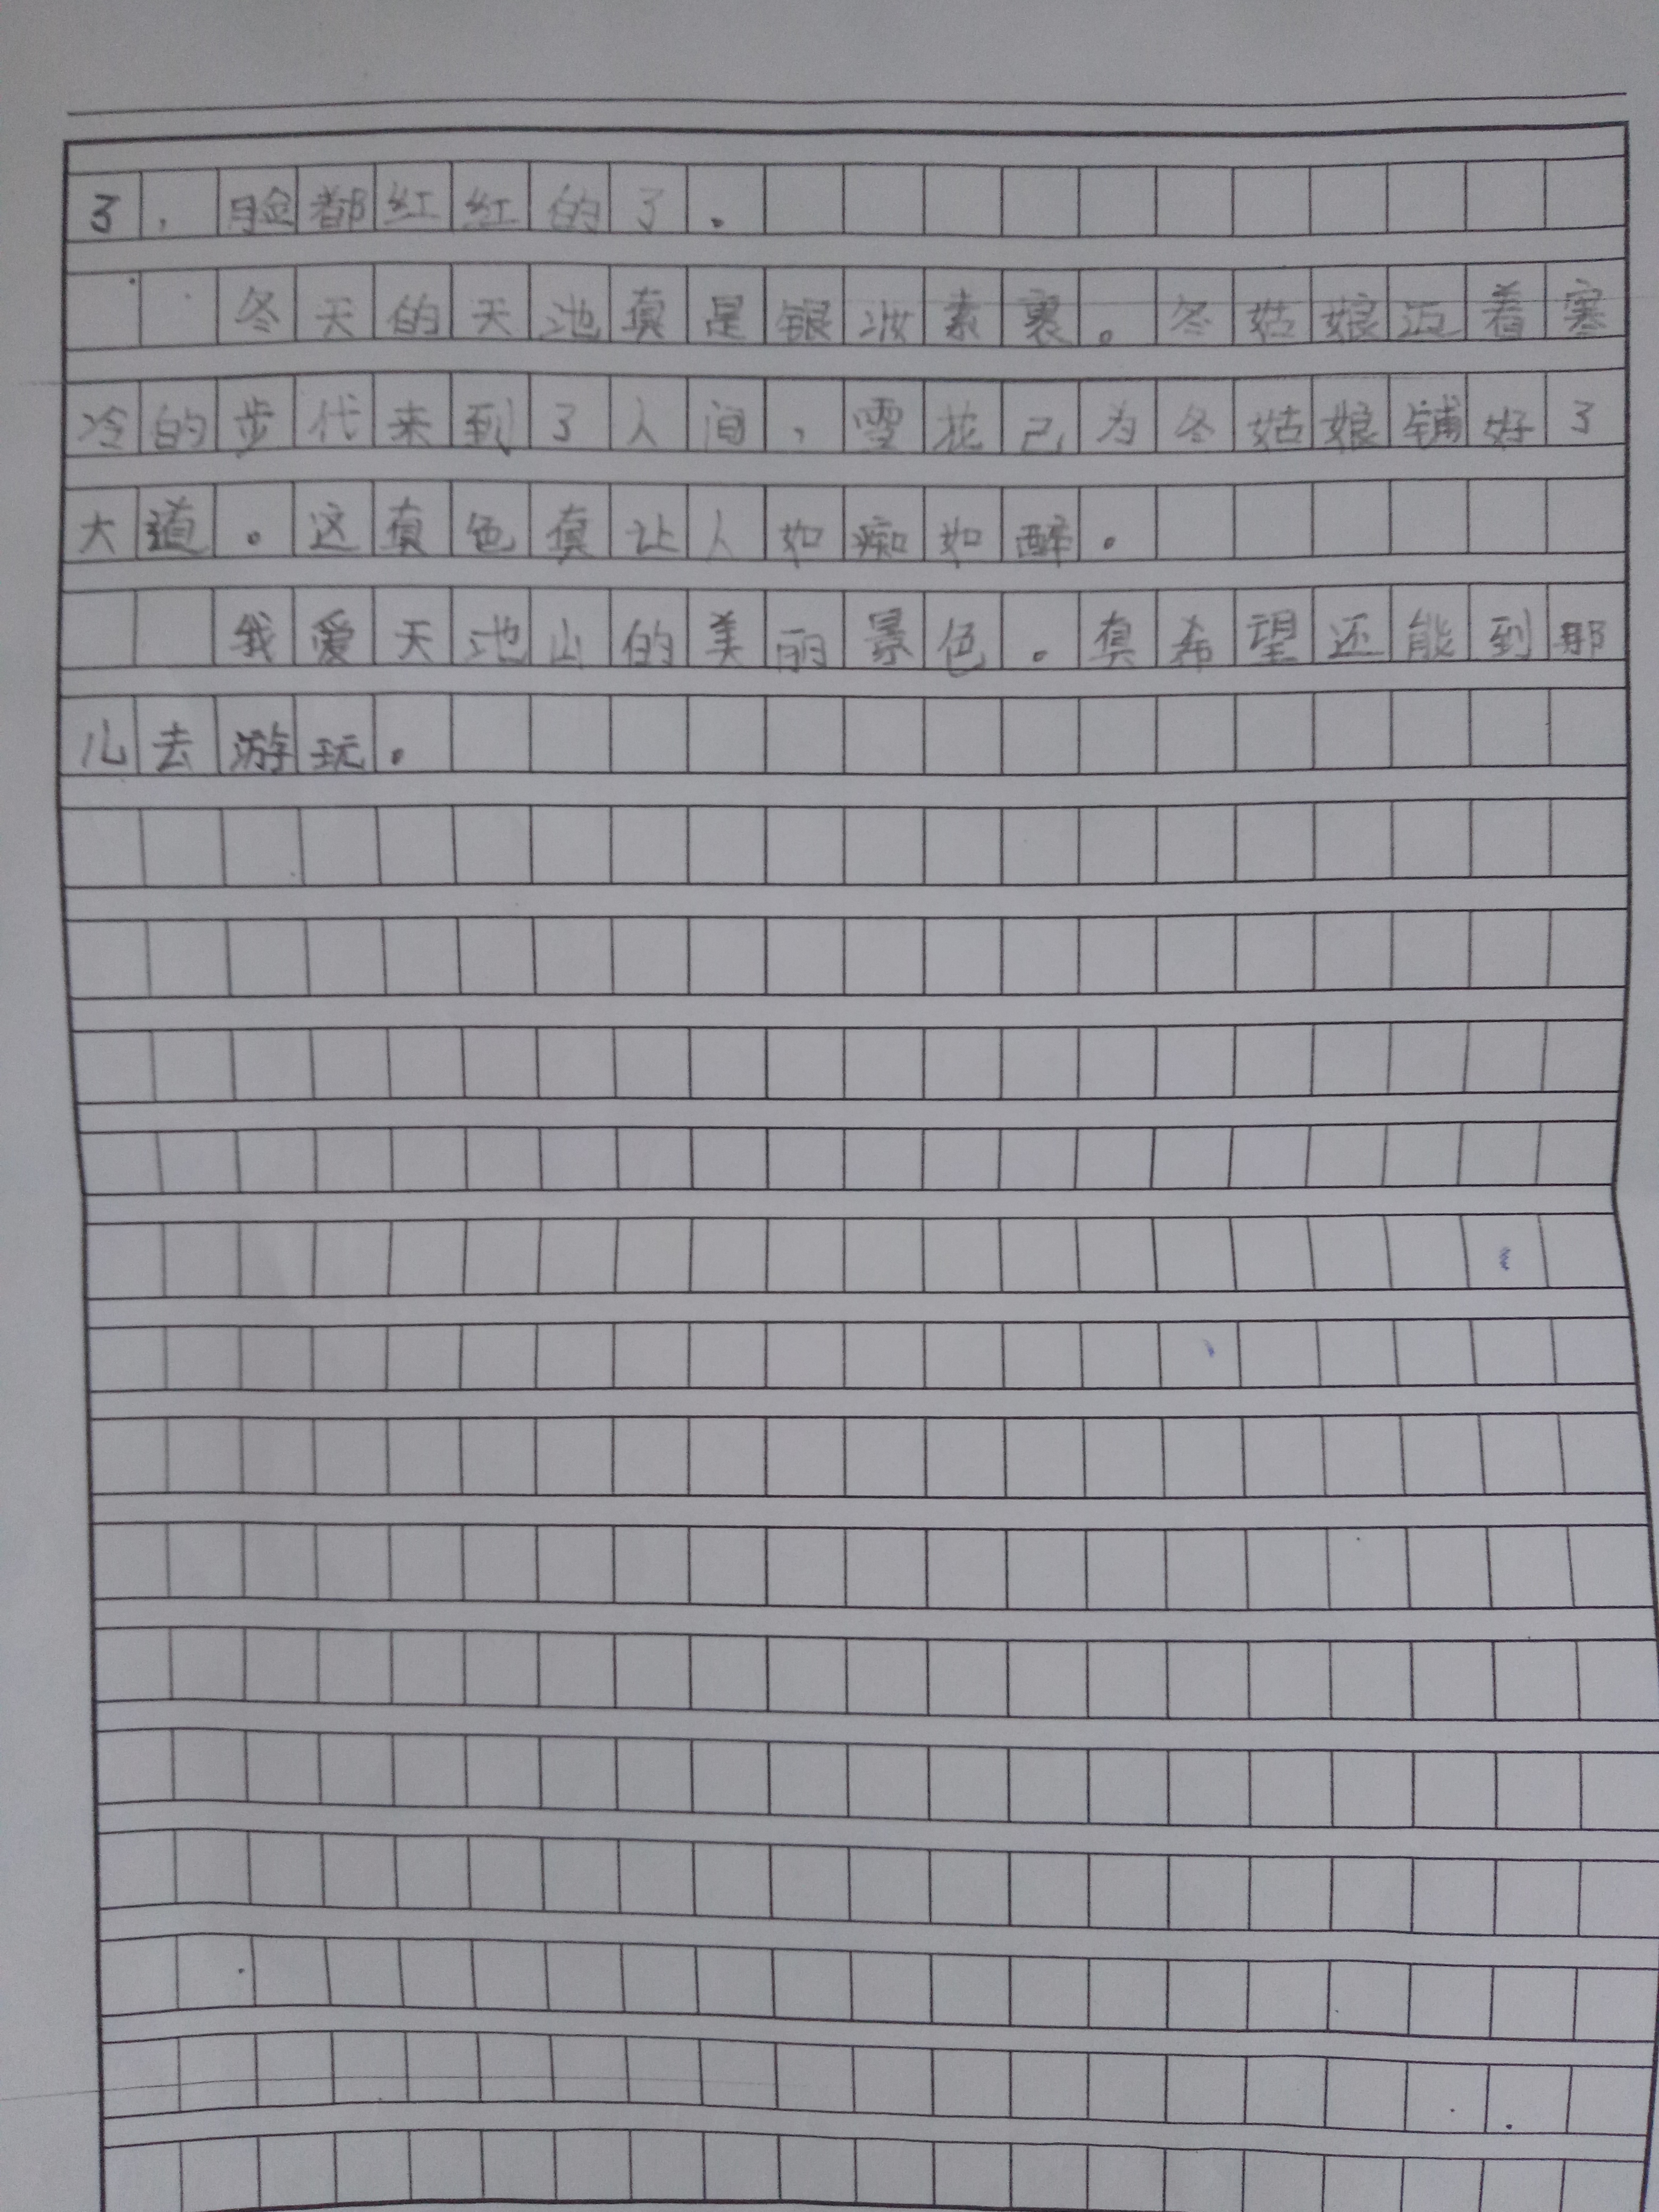 了，脸都红红的了。
冬天的天池真是银妆素裹。冬姑娘迈着寒
冷的步代来到了人间，雪花已为冬姑娘铺好了
大道。这真色真让人如痴如醉。
我爱天池山的美丽景色。真希望还能到那
儿去游玩。